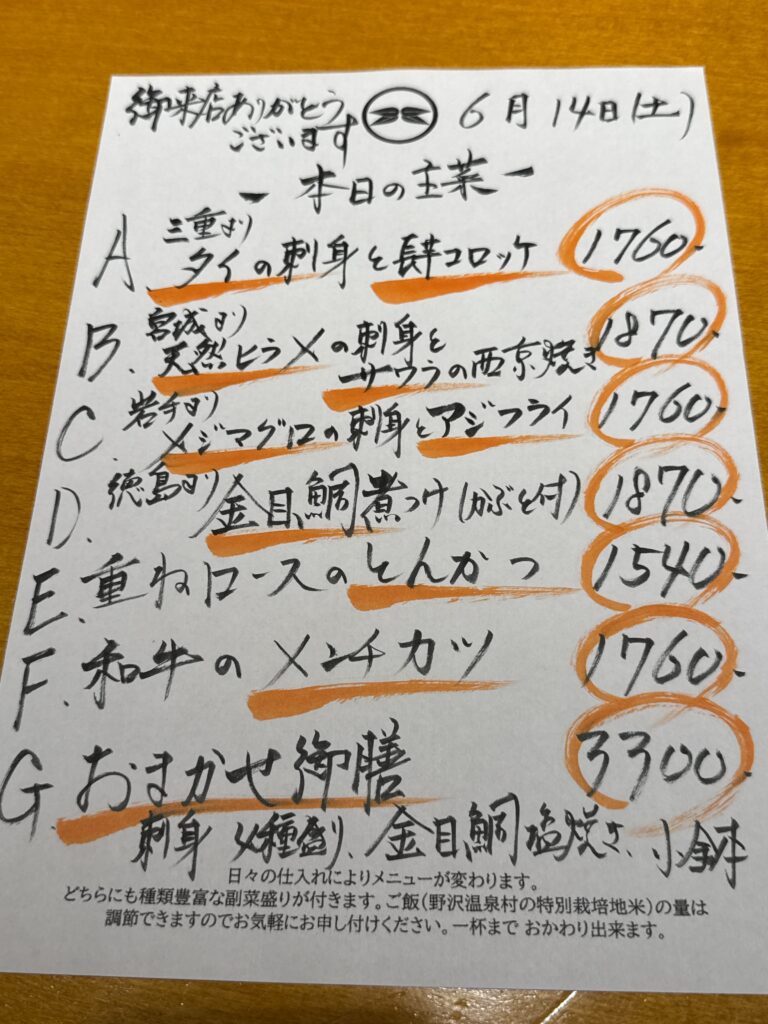 御来店ありがとう
ございます
6月14日(土)
ー本日の主菜ー
A. 三重より
タイの刺身と長芋コロッケ 1760-
B. 宮城より
天然ヒラメの刺身と
サワラの西京焼き 1870-
C. 岩手より
メジマグロの刺身とアジフライ 1760-
D. 徳島より 金目鯛煮つけ(かぶと付) 1870-
E. 重ねロースのとんかつ 1540-
F. 和牛のメンチカツ 1760-
G. おまかせ御膳 3300-
刺身4種盛り、金目鯛塩焼き、小鉢
日々の仕入れによりメニューが変わります。
どちらにも種類豊富な副菜盛りが付きます。ご飯(野沢温泉村の特別栽培地米)の量は
調節できますのでお気軽にお申し付けください。一杯まで おかわり出来ます。